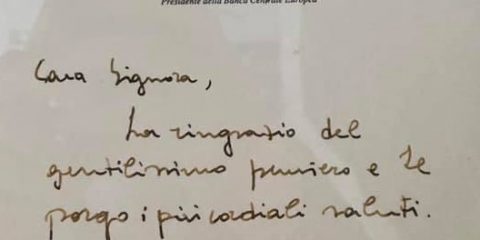 Presidente della Banca Centrale Europea
Cara Signora,
La ringrazio del
gentilissimo pensiero e Le
porgo i più cordiali saluti.